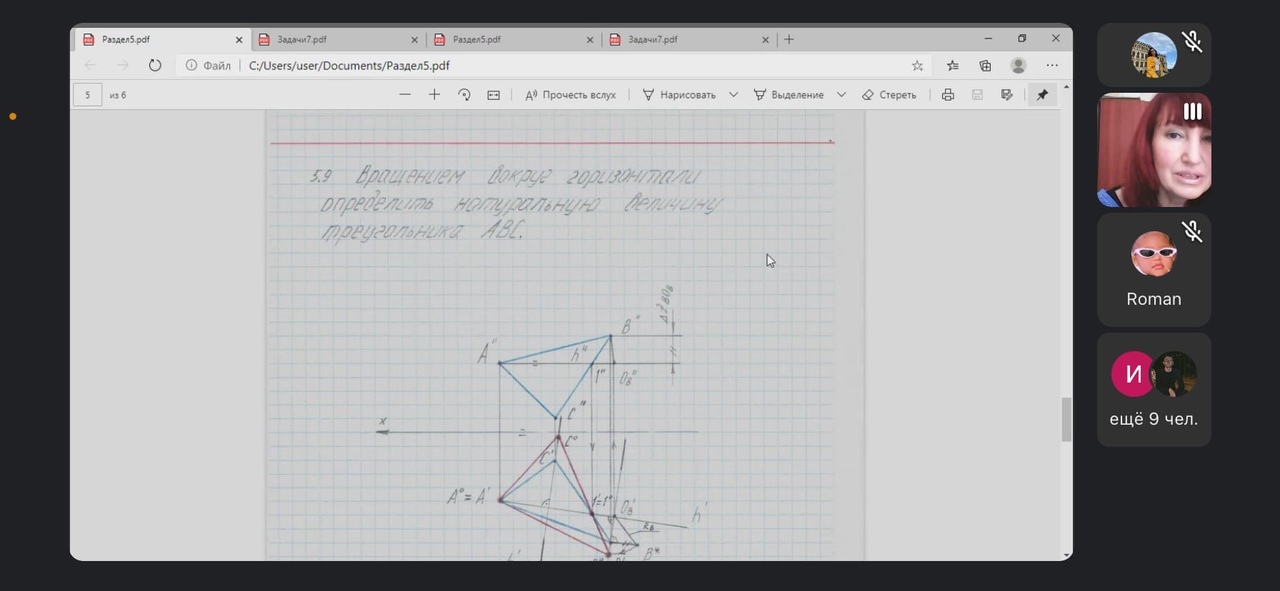 Раздел5.pdf
Задачи7.pdf
Раздел5.pdf
Задачи7.pdf
Файл
C:/Users/user/Documents/Раздел5.pdf
5 из 6
Прочесть вслух
Нарисовать
Выделение
Стереть
5.9 Вращением вокруг горизонтали
определить натуральную величину
треугольника ABC.
B"
A"
h"
1"
O_B"
C"
x
C°
C'
A°=A'
1'=1°
O_B'
h'
R_B
B*
Roman
И
ещё 9 чел.